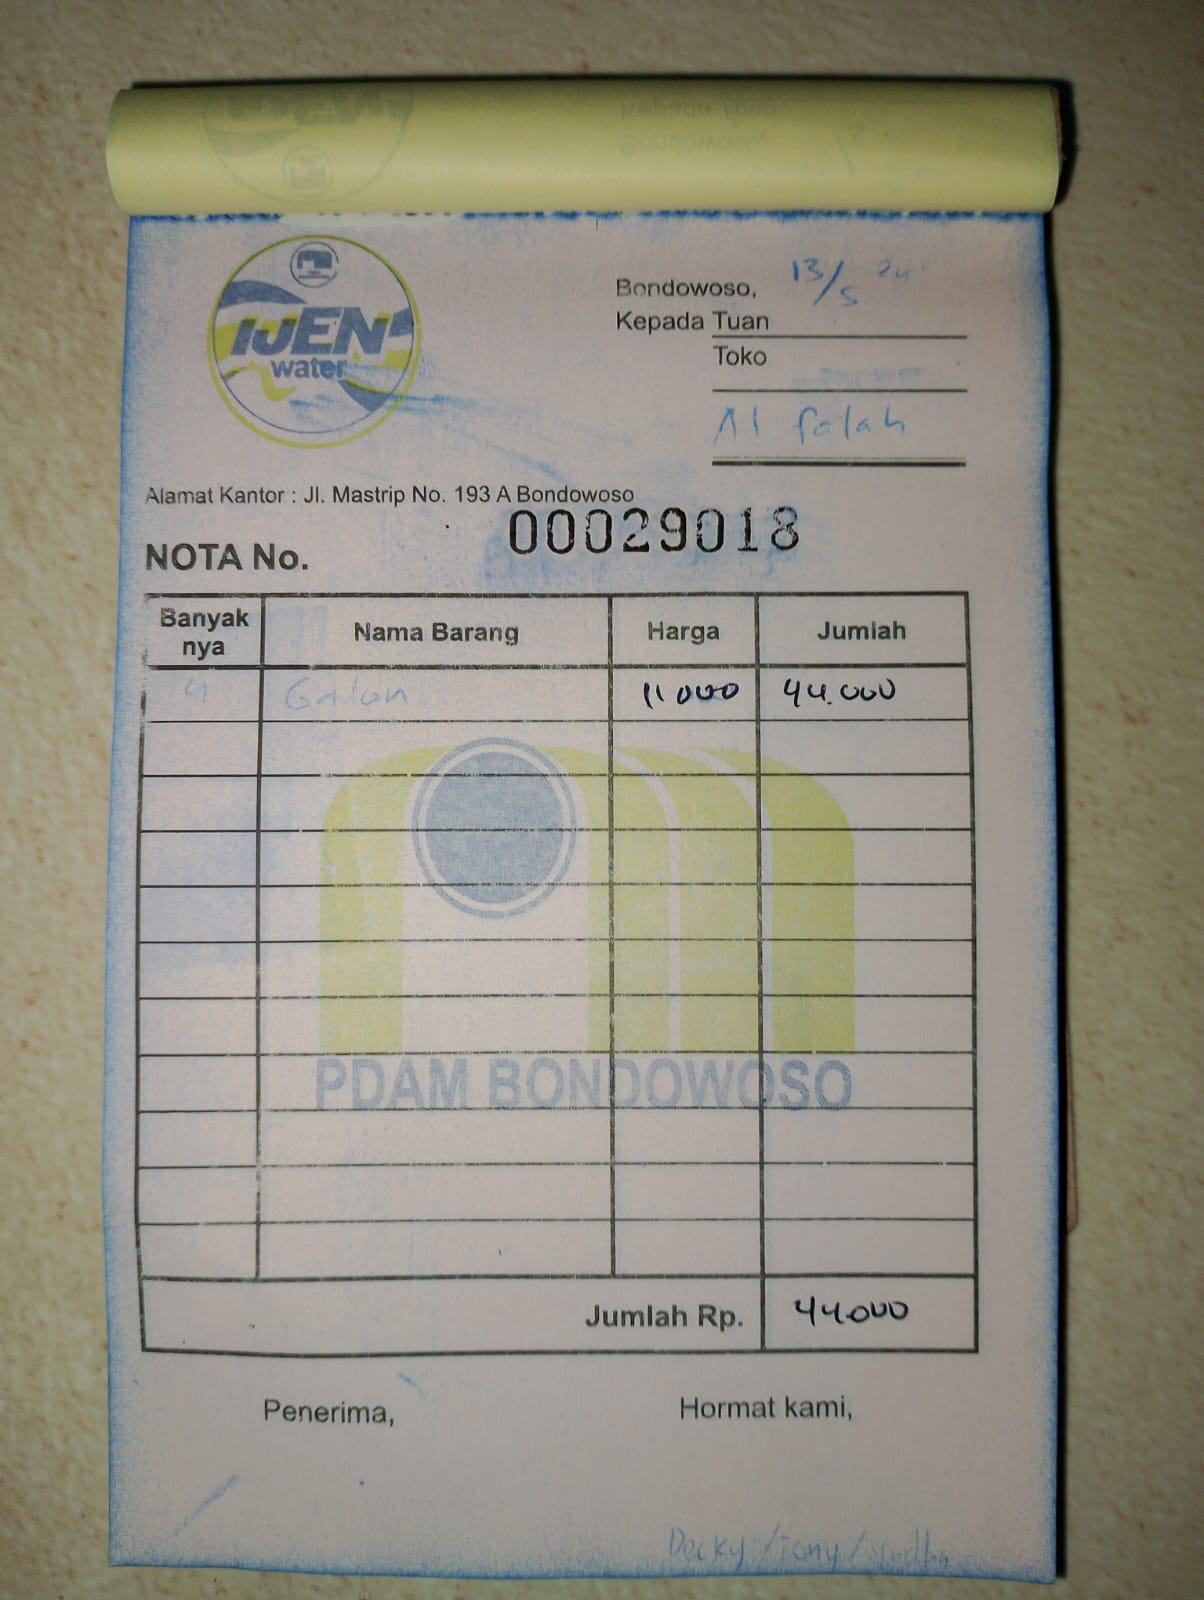 IJEN
water
Bondowoso, 13/5 24
Kepada Tuan
Toko
Al falah
Alamat Kantor : Jl. Mastrip No. 193 A Bondowoso
NOTA No. 00029018
Banyak nya Nama Barang Harga Jumlah
4 Galon 11 000 44.000
PDAM BONDOWOSO
Jumlah Rp. 44.000
Penerima, Hormat kami,
Decky / Tony /